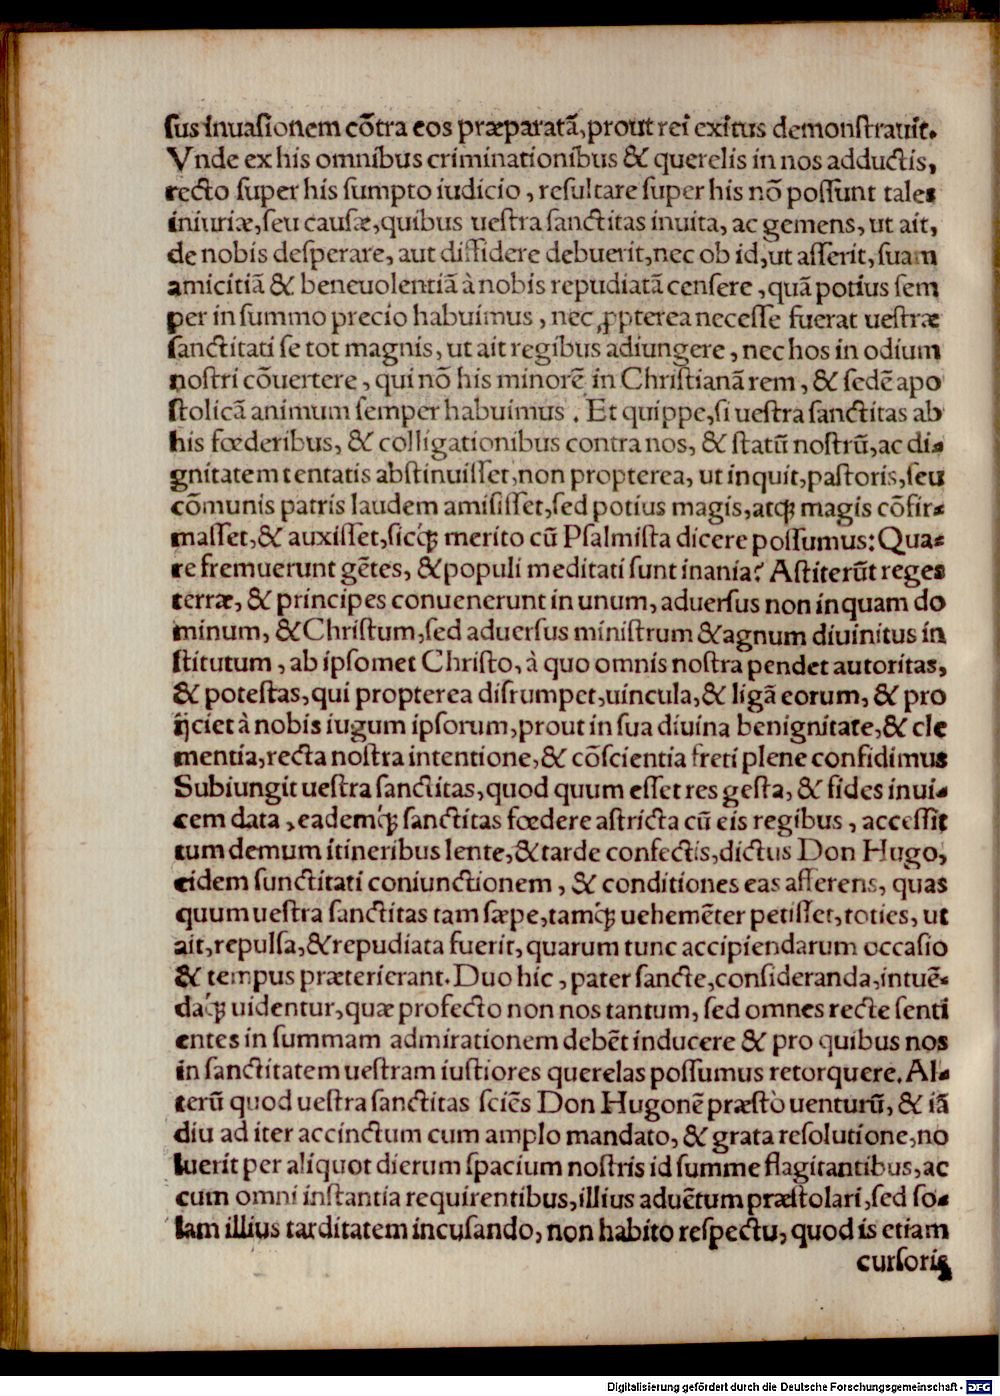 ſus inuaſionem cõtra eos præparatã,prout rei exitus demonſtrauit.
Vnde ex his omnibus criminationibus & querelis in nos adductis,
recto ſuper his ſumpto iudicio, reſultare ſuper his nõ poſſunt tales
iniuriæ,ſeu cauſæ,quibus ueſtra ſanctitas inuita, ac gemens, ut ait,
de nobis deſperare, aut diffidere debuerit,nec ob id,ut aſſerit,ſuam
amicitiã & beneuolentiã à nobis repudiatã cenſere, quã potius ſem
per in ſummo precio habuimus, nec ꝓpterea neceſſe fuerat ueſtræ
ſanctitati ſe tot magnis, ut ait regibus adiungere, nec hos in odium
noſtri cõuertere, qui nõ his minorẽ in Chriſtianã rem, & ſedẽ apo
ſtolicã animum ſemper habuimus. Et quippe,ſi ueſtra ſanctitas ab
his fœderibus, & colligationibus contra nos, & ſtatũ noſtrũ,ac di-
gnitatem tentatis abſtinuiſſet,non propterea, ut inquit,paſtoris,ſeu
cõmunis patris laudem amiſiſſet,ſed potius magis,atq̃ magis cõfir-
maſſet,& auxiſſet,ſicq̃ merito cũ Pſalmiſta dicere poſſumus: Qua-
re fremuerunt gẽtes, & populi meditati ſunt inania? Aſtiterũt reges
terræ, & principes conuenerunt in unum, aduerſus non inquam do
minum, & Chriſtum,ſed aduerſus miniſtrum & agnum diuinitus in
ſtitutum, ab ipſomet Chriſto, à quo omnis noſtra pendet autoritas,
& poteſtas,qui propterea diſrumpet,uincula,& ligã eorum, & pro
ijciet à nobis iugum ipſorum,prout in ſua diuina benignitate,& cle
mentia,recta noſtra intentione,& cõſcientia freti plene confidimus
Subiungit ueſtra ſanctitas,quod quum eſſet res geſta, & fides inui-
cem data, eademq̃ ſanctitas fœdere aſtricta cũ eis regibus, acceſſit
tum demum itineribus lente,& tarde confectis,dictus Don Hugo,
eidem ſunctitati coniunctionem, & conditiones eas afferens, quas
quum ueſtra ſanctitas tam ſæpe,tamq̃ uehemẽter petiſſet,toties, ut
ait,repulſa,& repudiata fuerit,quarum tunc accipiendarum occaſio
& tempus præterierant. Duo hic, pater ſancte,conſideranda,intuẽ-
daq̃ uidentur,quæ profecto non nos tantum, ſed omnes recte ſenti
entes in ſummam admirationem debẽt inducere & pro quibus nos
in ſanctitatem ueſtram iuſtiores querelas poſſumus retorquere. Al-
terũ quod ueſtra ſanctitas ſciẽs Don Hugonẽ præſto uenturũ, & iã
diu ad iter accinctum cum amplo mandato, & grata reſolutione,no
luerit per aliquot dierum ſpacium noſtris id ſumme flagitantibus,ac
cum omni inſtantia requirentibus,illius aduẽtum præſtolari,ſed ſo-
lam illius tarditatem incuſando, non habito reſpectu, quod is etiam
curſoris
Digitalisierung gefördert durch die Deutsche Forschungsgemeinschaft - DFG